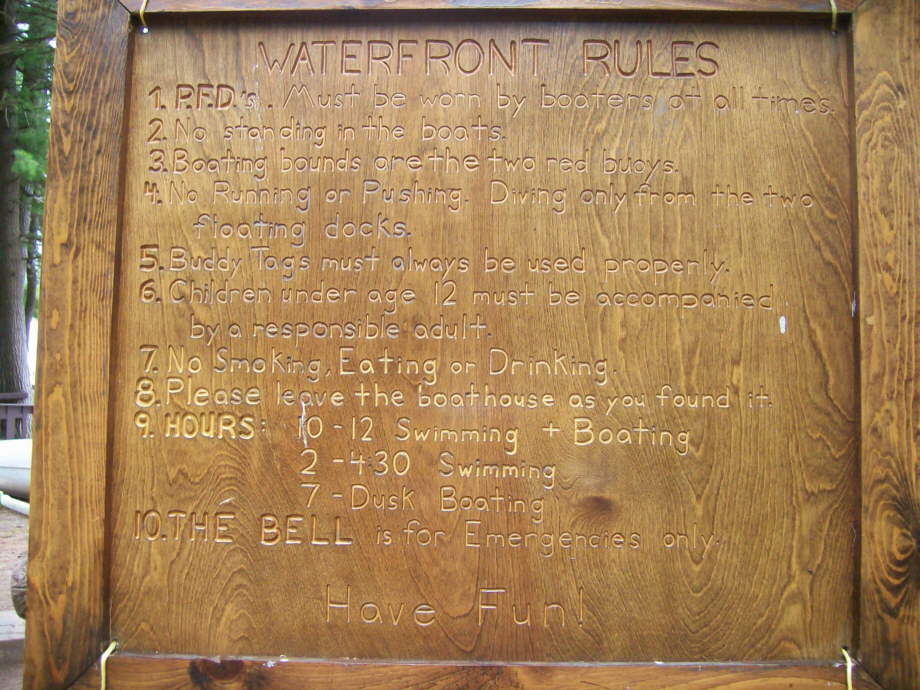 WATERFRONT RULES
1. P.F.D.'s. Must be worn by boaters at all times.
2. No standing in the boats.
3. Boating bounds are the two red buoys.
4. No Running or Pushing. Diving only from the two
floating docks.
5. Buddy Tags must always be used properly.
6. Children under age 12 must be accompanied
by a responsible adult.
7. No Smoking, Eating or Drinking.
8. Please leave the boathouse as you found it.
9. HOURS: 10 - 12 Swimming + Boating
2 - 4:30 Swimming
7 - Dusk Boating
10. THE BELL is for Emergencies only.
Have Fun!